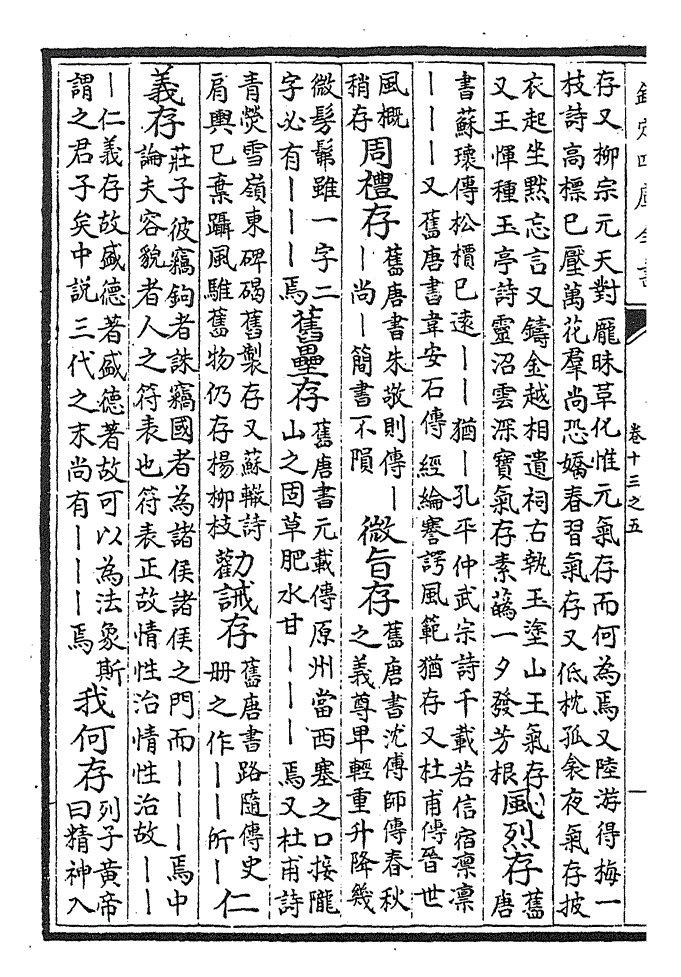 欽定四庫全書
卷十三之五
存又柳宗元天對厖昧草化惟元氣存而何為焉又陸游得梅一
枝詩高標已壓萬花羣尚恐嬌春習氣存又低枕孤衾夜氣存披
衣起坐黙忘言又鑄金越相遺祠古執玉塗山王氣存
又王惲種玉亭詩靈沼雲深寳氣存素蘤一夕發芳根
風烈存
舊
唐
書蘇瓌傳松檟已逺——猶—孔平仲武宗詩千載若信宿凛凛
———又舊唐書韋安石傳經綸謇諤風範猶存又杜甫傳晉世
風概
稍存
周禮存
舊唐書朱敬則傳—
—尚—簡書不隕
微旨存
舊唐書沈傳師傳春秋
之義尊卑輕重升降幾
微髣髴雖一字二
字必有———焉
舊壘存
舊唐書元載傳原州當西塞之口接隴
山之固草肥水甘———焉又杜甫詩
青熒雪嶺東碑碣舊製存又蘇轍詩
肩輿已棄躡風騅舊物仍存楊柳枝
勸誡存
舊唐書路隨傳史
册之作——所—
仁
義存
莊子彼竊鉤者誅竊國者為諸侯諸侯之門而———焉中
論夫容貌者人之符表也符表正故情性治情性治故——
—仁義存故盛德著盛德著故可以為法象斯
謂之君子矣中説三代之末尚有———焉
我何存
列子黄帝
曰精神入